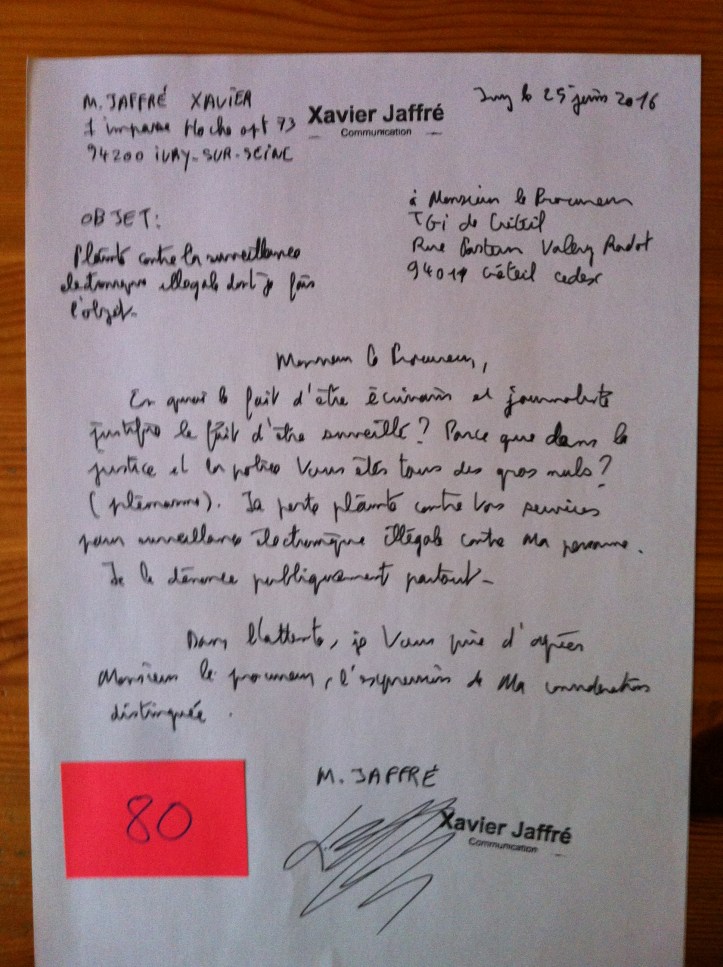 M. JAFFRÉ XAVIER
1 impasse Hoche apt 73
94200 IVRY-SUR-SEINE
Xavier Jaffré
Communication
Ivry le 25 juin 2016
à Monsieur le Procureur
TGi de Créteil
Rue Pasteur Valery Radot
94011 Créteil cedex
OBJET:
Plainte contre la surveillance
électronique illégale dont je fais
l'objet.
Monsieur le Procureur,
En quoi le fait d'être écrivain et journaliste
justifie le fait d'être surveillé? Parce que dans la
justice et la police vous êtes tous des gros nuls?
(pléonasme). Je porte plainte contre vos services
pour surveillance électronique illégale contre ma personne.
Je le dénonce publiquement partout-
Dans l'attente, je vous prie d'agréer
Monsieur le procureur, l'expression de ma considération
distinguée.
M. JAFFRÉ
Xavier Jaffré
Communication
80